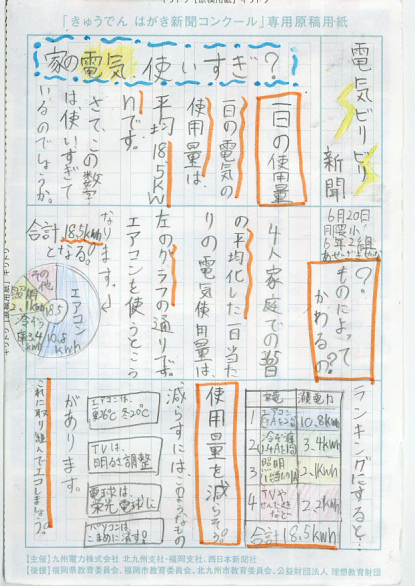 「きゅうでん はがき新聞コンクール」専用原稿用紙
電気ビリビリ新聞
家の電気、使いすぎ?
一日の使用量
一日の電気の
使用量は、
平均18.5KW
hです。
さて、この数字
は、使いすぎて
いるのでしょうか。
6月20日
?ものによって
かわるの?
4人家庭での昔
の平均化した一日当た
りの電気使用量は、
左のグラフの通りです。
エアコンを使うとこう
なります。
合計18.5kWh
となる!
エアコン
10.8
kWh
冷ぞう
庫3.4
kWh
照明
その他
18.5
ランキングにすると…
家電
消費電力
1 エアコン 10.8kWh
2 冷ぞう庫 3.4kWh
3 照明 2.1kWh
4 TVや 2.2kWh
合計 18.5kWh
使用量を減らそう。
減らすには、このようなもの
があります。
エアコンは、
夏26℃ 冬20℃
TVは、
明るさ調整
電球は
蛍光電球に
パソコンは
こまめに消す?
これに取り組んでエコしましょう。
【主催】九州電力株式会社 北九州支社・福岡支社、西日本新聞社
【後援】福岡県教育委員会、福岡市教育委員会、北九州市教育委員会、公益財団法人 理想教育財団